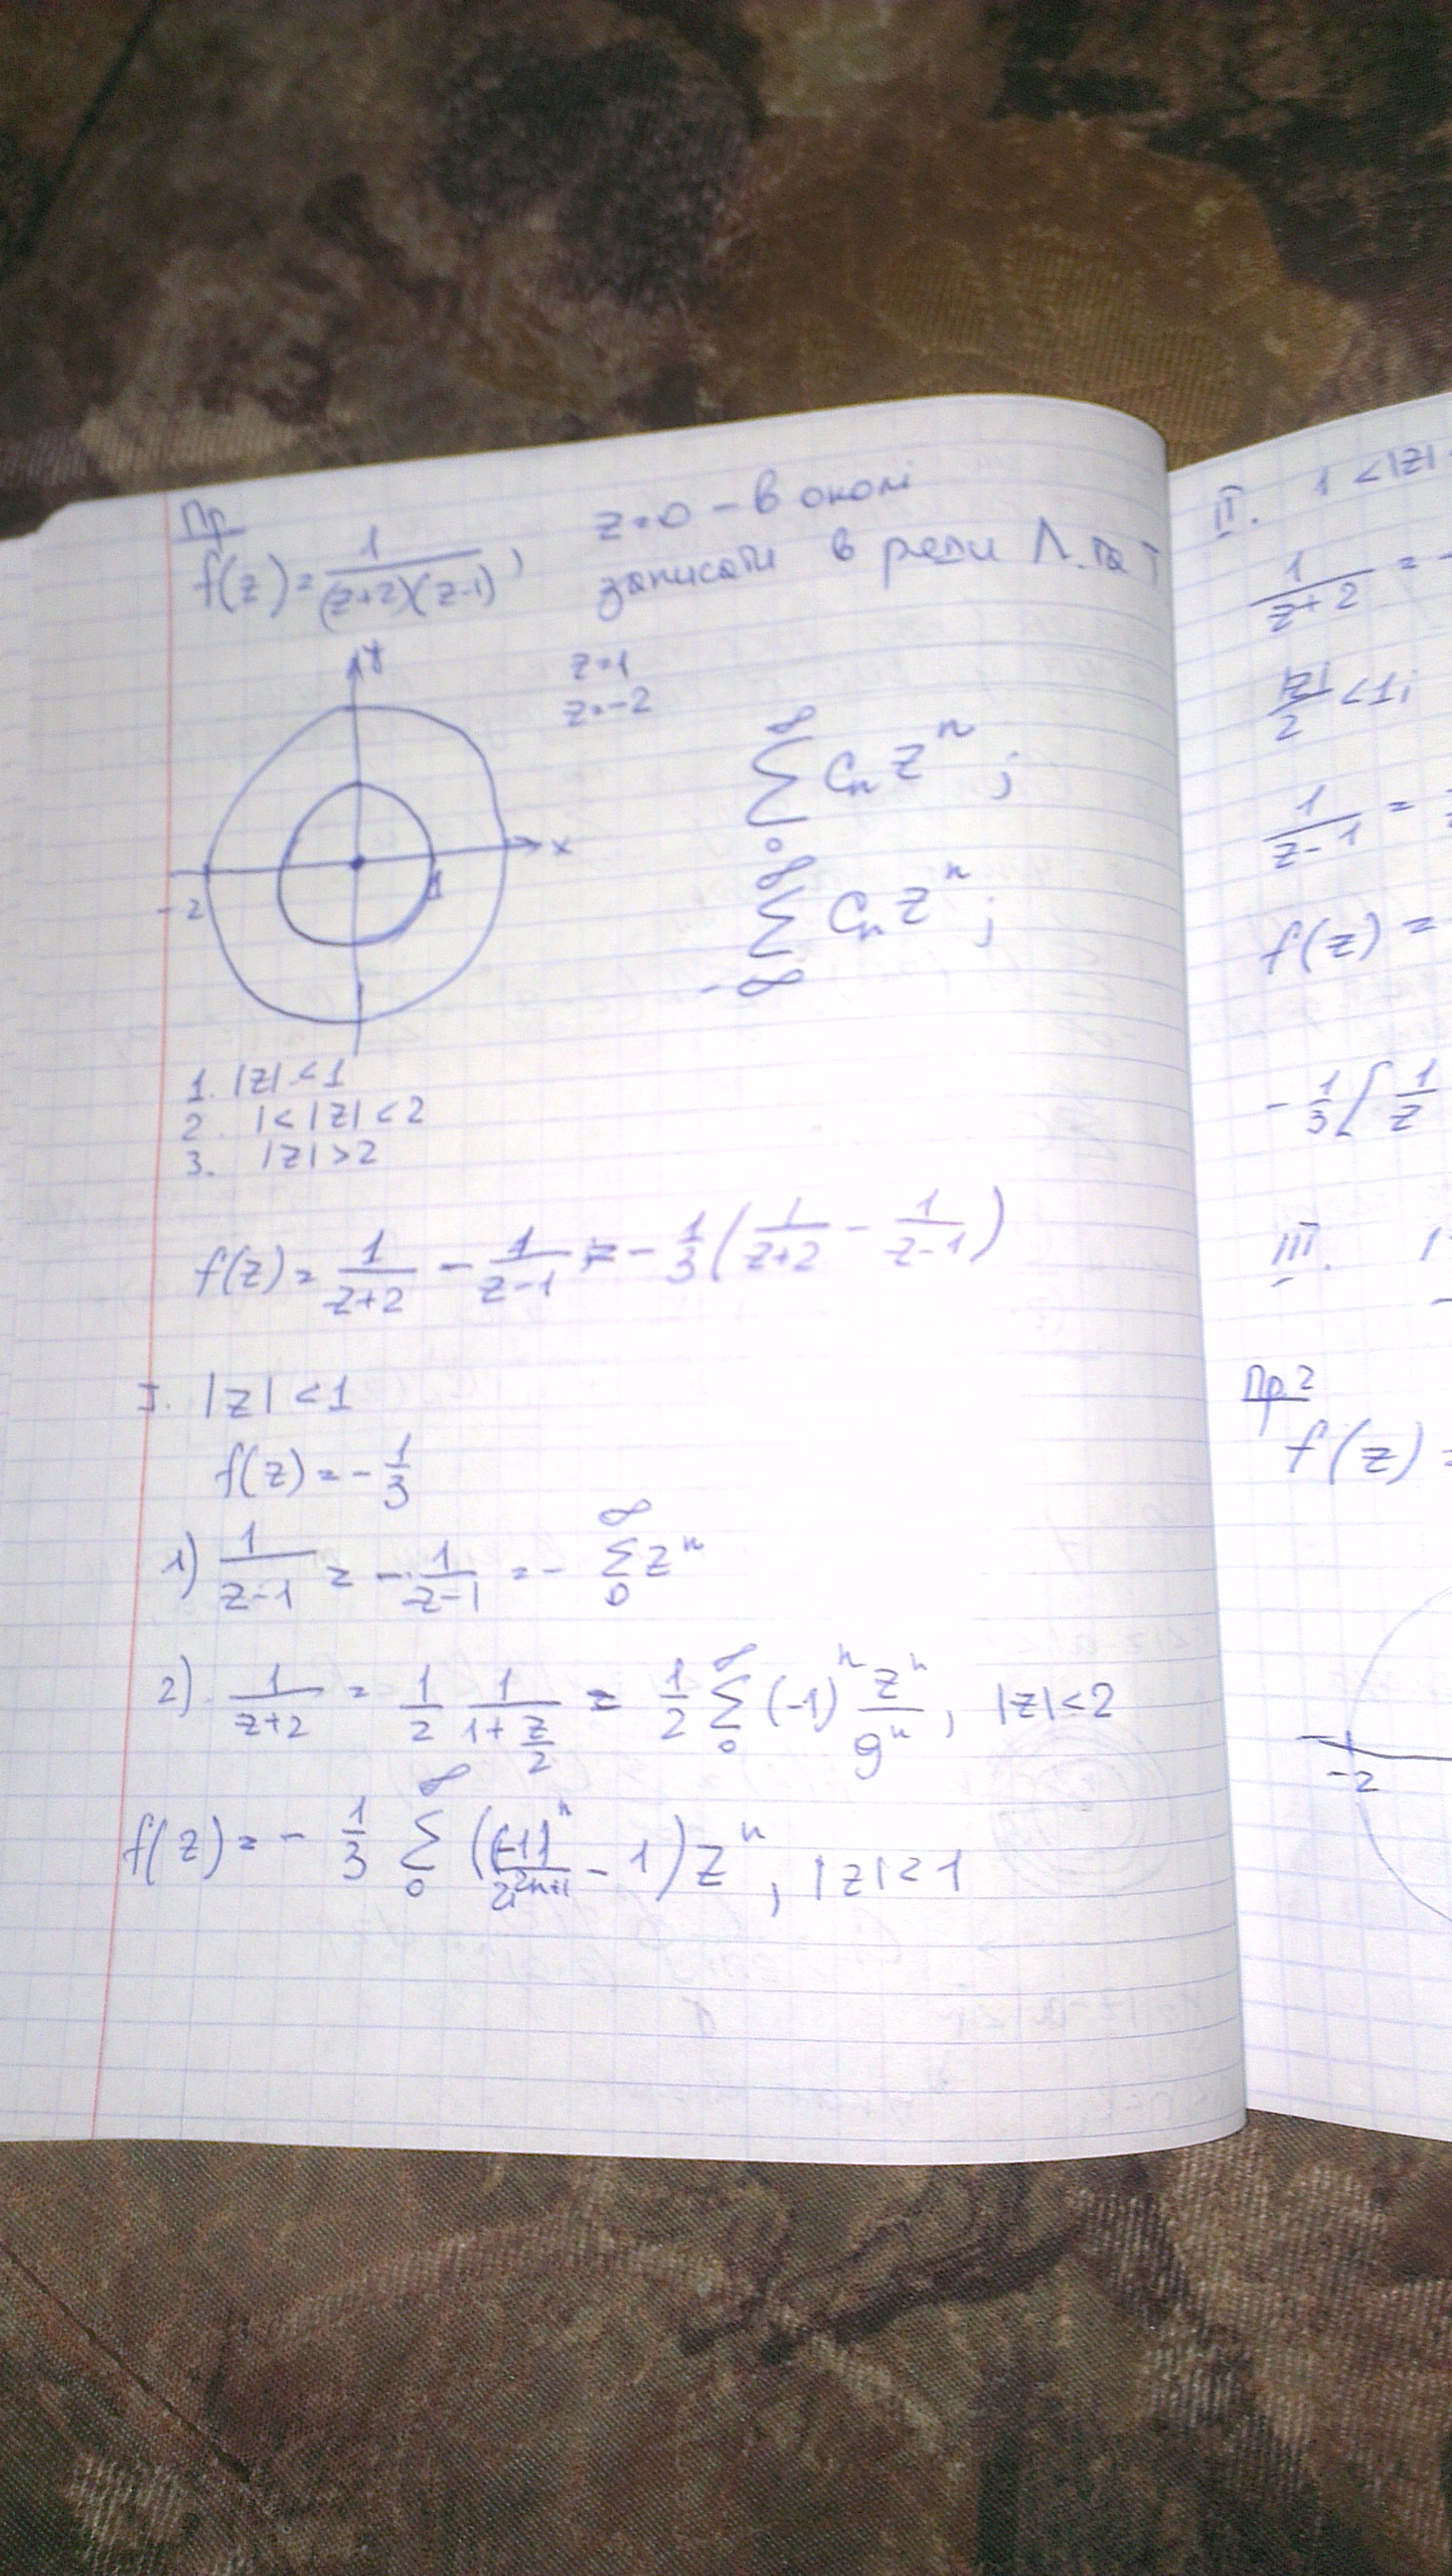 Пр
f(z) = 1/((z+2)(z-1)),
z=0 – в околі
записати в ряди Л. та Т
y
x
-2
1
z=1
z=-2
∞ ∑ 0 Cₙ zⁿ ;
∞ ∑ -∞ Cₙ zⁿ ;
1. |z| < 1
2. 1 < |z| < 2
3. |z| > 2
f(z) = 1/(z+2) - 1/(z-1) = - 1/3 (1/(z+2) - 1/(z-1))
I. |z| < 1
f(z) = - 1/3
1) 1/(z-1) = - 1/(z-1) = - ∞ ∑ 0 zⁿ
2) 1/(z+2) = 1/2 1/(1+z/2) = 1/2 ∞ ∑ 0 (-1)ⁿ zⁿ/9ⁿ, |z| < 2
f(z) = - 1/3 ∞ ∑ 0 ((-1)ⁿ/2ⁿ⁺¹ - 1) zⁿ, |z| < 1
II. 1 < |z|
1/(z+2) = -
|z|/2 < 1;
1/(z-1) =
f(z) =
- 1/3 [ 1/z
III.
Пр 2
f(z) =
-2